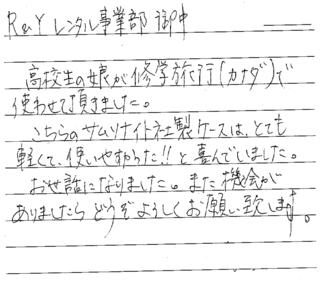 R&Y レンタル事業部 御中
高校生の娘が修学旅行(カナダ)で
使わせて頂きました。
こちらのサムソナイト社製ケースは、とても
軽くて、使いやすかった!!と喜んでいました。
お世話になりました。また機会が
ありましたら どうぞよろしくお願い致します。